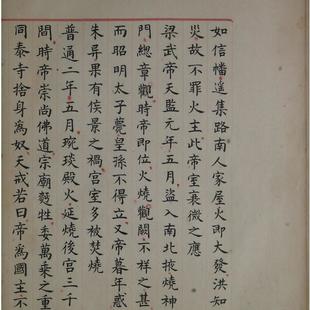 如信幡遥集路南人家屋火即大發洪知
災故不罪火主此帝室衰微之應
梁武帝天監元年五月盜入南北掖燒神
門總章觀時帝即位火燒觀闕不祥之甚
而昭明太子薨皇孫不得立又帝暮年惑
朱异果有侯景之禍宫室多被焚燒
普通二年五月琬琰殿火延燒後宫三千
間時帝崇尚佛道宗廟牲牷委萬乘之重
同泰寺捨身為奴天戒若曰帝為國主不